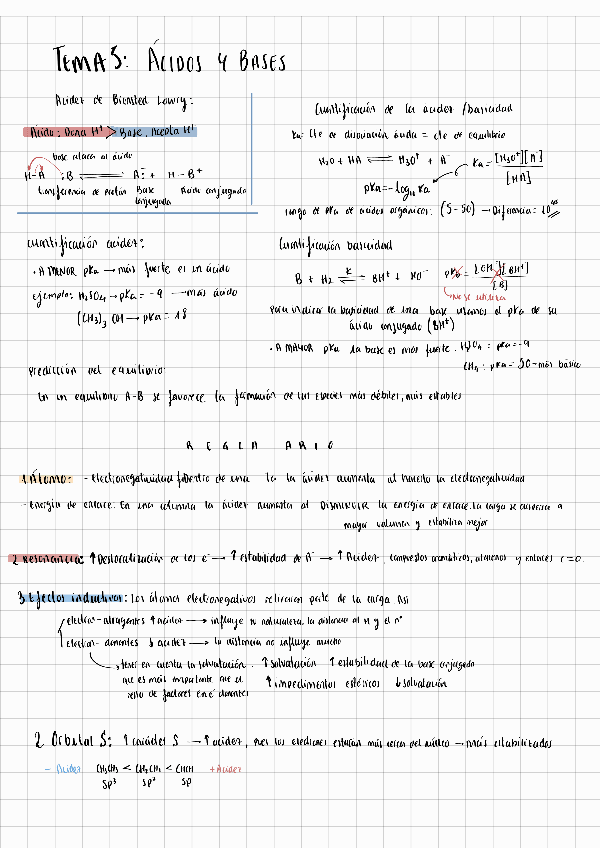 TEMA 5: ÁCIDOS Y BASES
Acidez de Bronsted Lowry:
Ácido: Dona H⁺ > Base, Acepta H⁺
base ataca al ácido
H-A :B ⇌ A:⁻ + H-B⁺
transferencia de protón Base conjugada Ácido conjugado
Cuantificación de la acidez / basicidad
Ka: cte de disociación ácida = cte de equilibrio
H₂O + HA ⇌ H₃O⁺ + A⁻ Ka = [H₃O⁺][A⁻] / [HA]
pKa = -log₁₀ Ka
rango de pKa de ácidos orgánicos: (5-50) → Diferencia = 10
Cuantificación acidez:
· A MENOR pKa → más fuerte es un ácido
ejemplo: H₂SO₄ → pKa = -9 → más ácido
(CH₃)₃ COH → pKa = 18
Cuantificación basicidad
B + H₂ ⇌ BH⁺ + HO⁻ pKb = [OH⁻][BH⁺] / [B]
No se utiliza
para indicar la basicidad de una base usamos el pKa de su
ácido conjugado (BH⁺)
· A MAYOR pKa la base es más fuerte. H₂SO₄: pKa = -9
CH₄: pKa = 50 - más básico
Predicción del equilibrio:
En un equilibrio A-B se favorece la formación de las especies más débiles, más estables
REGLA ARIO
1 Átomo: - electronegatividad: Dentro de una la acidez aumenta al hacerlo la electronegatividad
- Energía de enlace: En una columna la acidez aumenta al DISMINUIR la energía de enlace. La carga se dispersa a
mayor volumen y estabiliza mejor
2 Resonancia: ↑ Deslocalización de los e⁻ → ↑ estabilidad de A⁻ → ↑ Acidez, compuestos aromáticos, alquenos y enlaces C=O.
3 Efectos inductivos: Los átomos electronegativos retiran parte de la carga. Así
electron-atrayentes ↑ acidez → influye su naturaleza, la distancia al H y el nº
electron-donantes ↓ acidez → la distancia no influye mucho
tener en cuenta la solvatación. ↑ solvatación ↑ estabilidad de la base conjugada
que es más importante que el
resto de factores en e⁻ donantes
↑ impedimentos estéricos ↓ solvatación
2 Orbital S: ↑ carácter S → ↑ acidez, pues los electrones estarían más cerca del núcleo → más estabilizados
- Acidez CH₃CH₃ < CH₂CH₂ < CHCH + Acidez
sp³ sp² sp